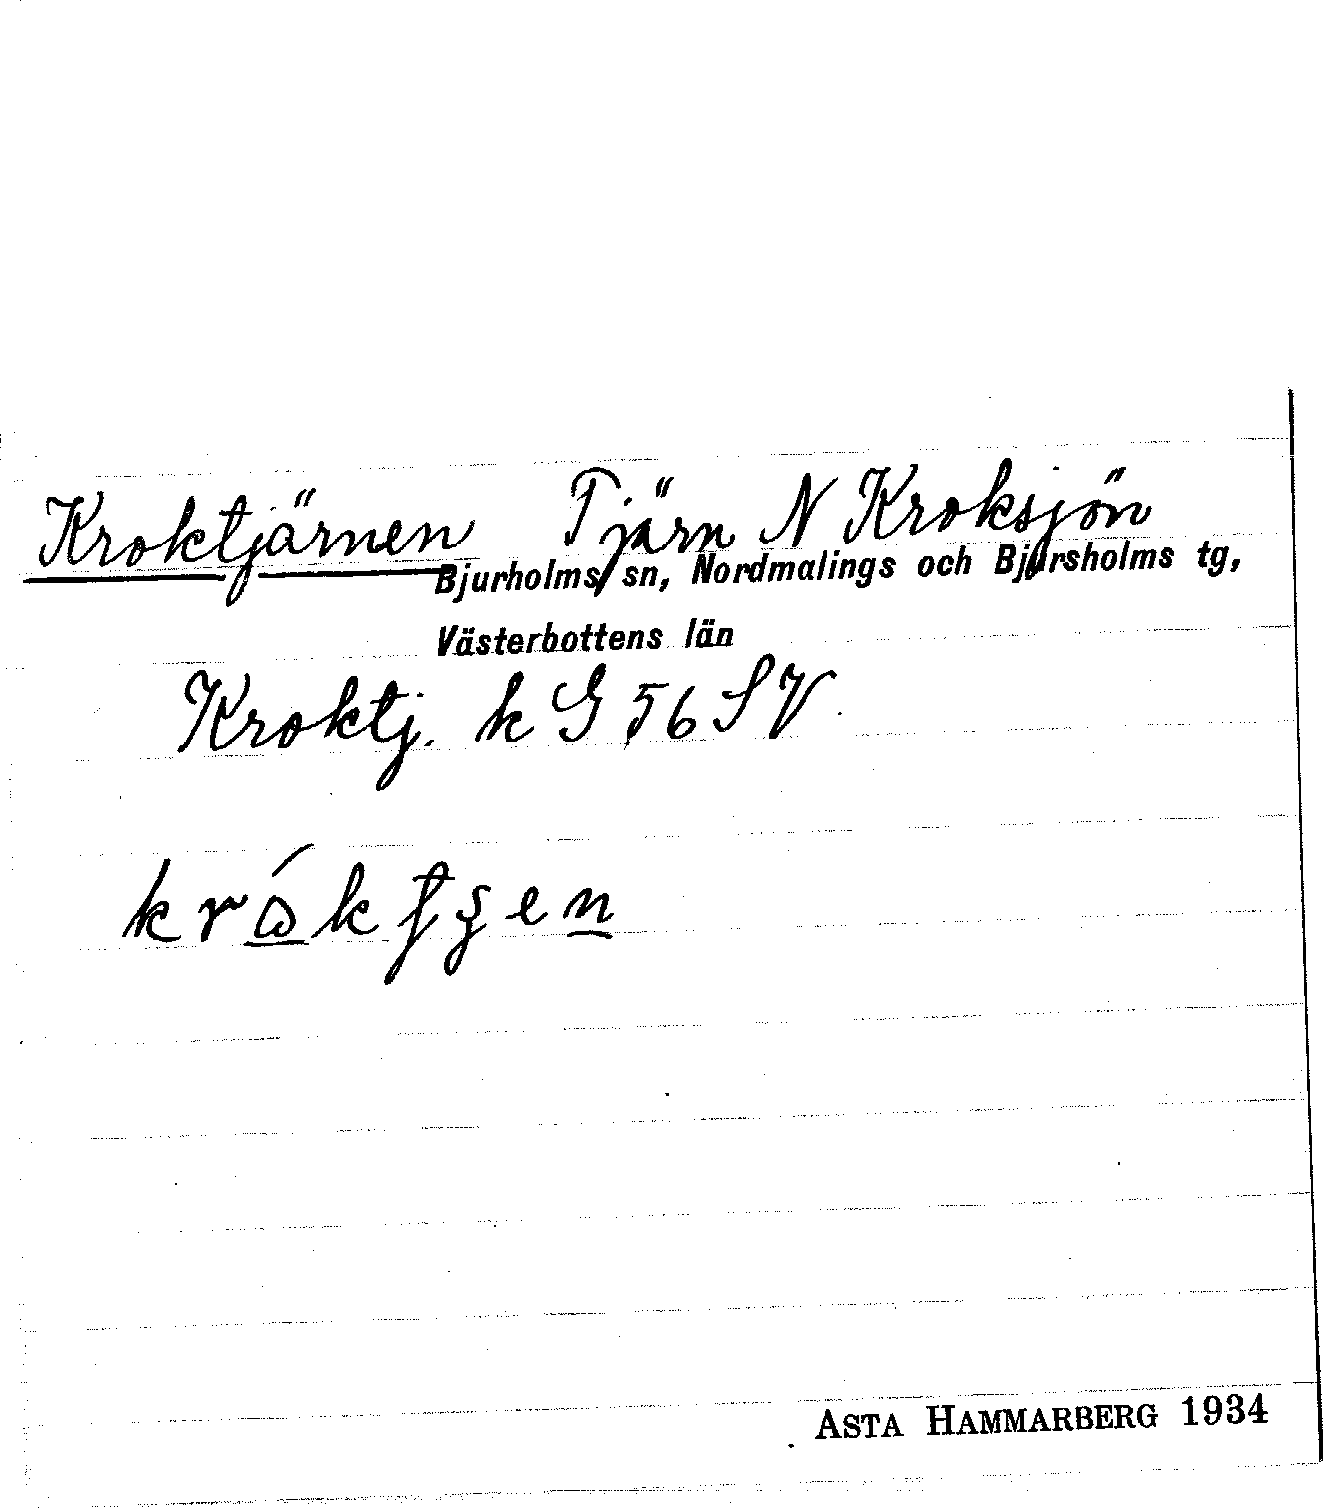 Kroktjärnen Tjärn N Kroksjön
Bjurholms sn, Nordmalings och Bjursholms tg,
Västerbottens län
Kroktj. k G 56 SV
ASTA HAMMARBERG 1934